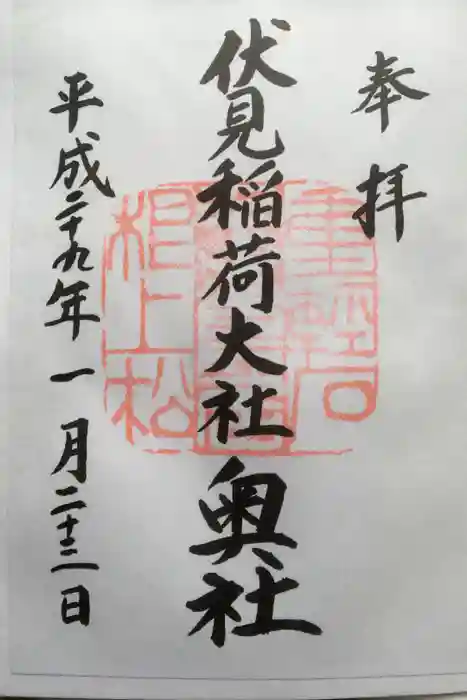 奉拝
伏見稲荷大社奥社
平成二十九年一月二十三日
重軽石
根上松